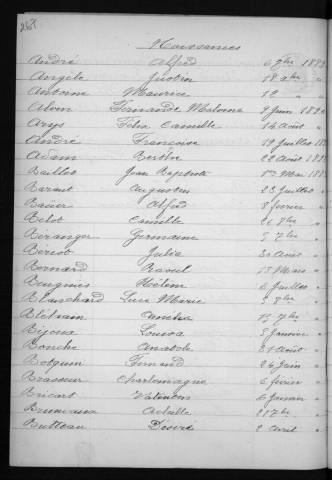 Naissances
André Alfred 6 9bre 189
Angèle Justin 18
Antoine Maurice 12 "
Alvin Fernande Malvina 9 Juin 18
Arys Félix Camille 14 Août
André Françoise 19 Juillet 18
Adam Berthe 22 Août 18
Jean Baptiste 1er Mai 18
Augustin 23 Juillet
Bauer Alfred 8 février
Belot Camille 26 7bre
Béranger Germaine 9 7bre
Julia 30 Août
Bernard Raoul 15 Mars
Hélène 6 Juillet
Blanchard Luce Marie 7bre
Amélia 15 7bre
Bijoux Louisa 5 Janvier
Bonche Anatole 21 Août
Fernand 24 Juin
Brasseur Charlemagne 6 février
Bricart Valentin 6 Janvier
Achille 21 7bre
Butteau Désiré 2 avril